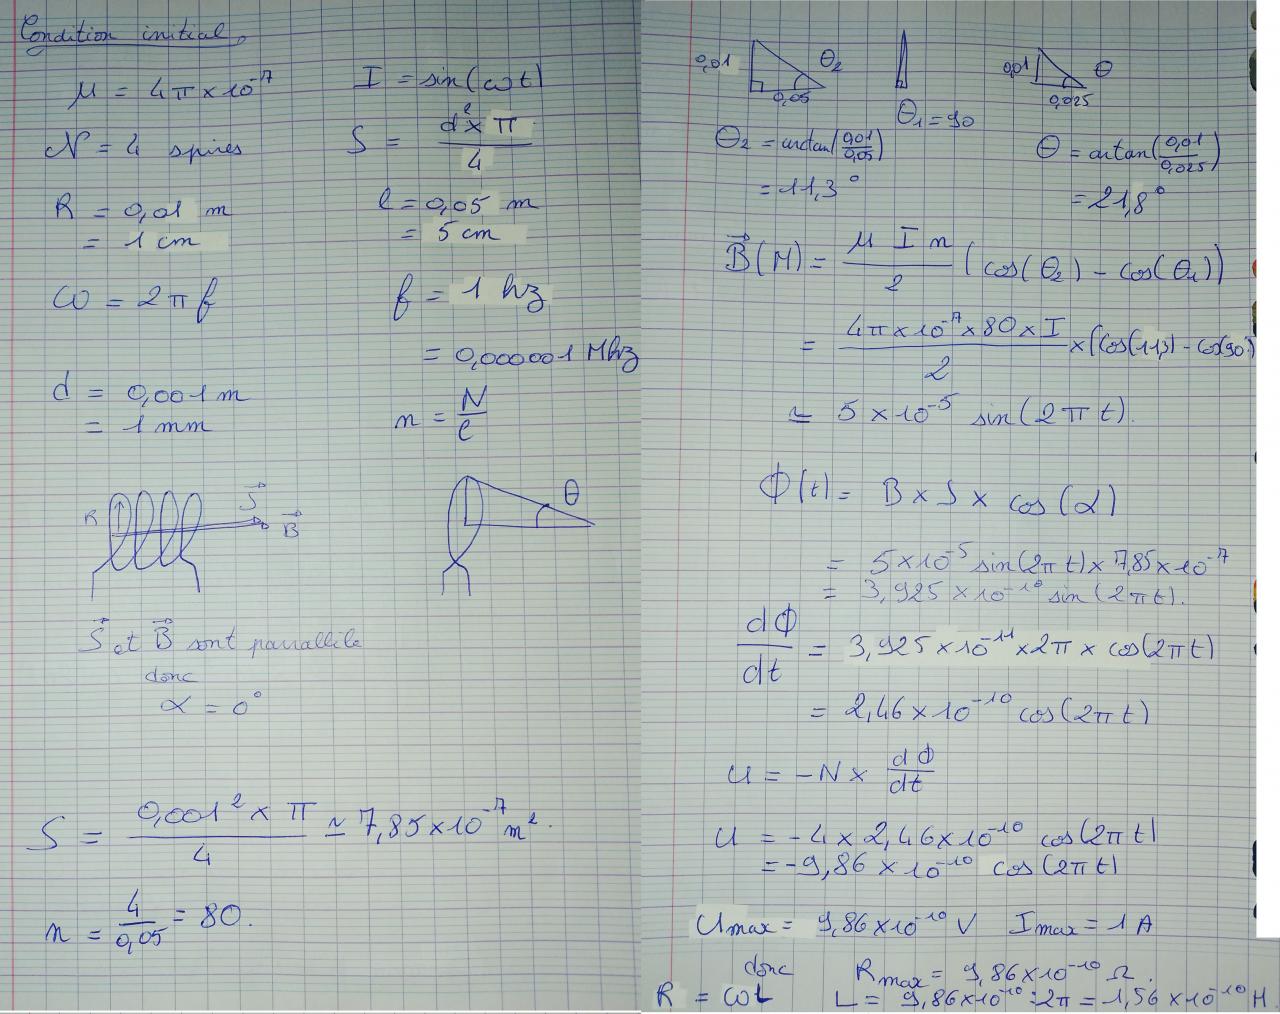 Condition initial,
μ = 4π×10⁻⁷ I = sin(ωt)
N = 4 spires S = d² × π / 4
R = 0,01 m l = 0,05 m
= 1 cm = 5 cm
ω = 2πf f = 1 hz
= 0,000001 Mhz
d = 0,001 m
= 1 mm n = N / l
R S⃗ B⃗ θ
S⃗ et B⃗ sont parrallèle
donc
α = 0°
S = 0,001² × π / 4 ≃ 7,85×10⁻⁷ m².
n = 4 / 0,05 = 80.
0,01 θ₂ 0,05 θ₁ = 90 0,01 θ 0,025
θ₂ = arctan(0,01/0,05) θ = artan(0,01/0,025)
= 11,3° = 21,8°
B⃗(M) = μ I n / 2 (cos(θ₂) - cos(θ₁))
= 4π×10⁻⁷×80×I / 2 ×(cos(11,3) - cos(90°))
≃ 5×10⁻⁵ sin(2πt).
Φ(t) = B × S × cos(α)
= 5×10⁻⁵ sin(2πt)×7,85×10⁻⁷
= 3,925×10⁻¹⁰ sin(2πt).
dΦ/dt = 3,925×10⁻¹¹×2π×cos(2πt)
= 2,46×10⁻¹⁰ cos(2πt)
U = -N× dΦ/dt
U = -4×2,46×10⁻¹⁰ cos(2πt)
= -9,86×10⁻¹⁰ cos(2πt)
Umax = 9,86×10⁻¹⁰ V Imax = 1 A
donc Rmax = 9,86×10⁻¹⁰ Ω.
R = ωL L = 9,86×10⁻¹⁰:2π = 1,56×10⁻¹⁰ H.